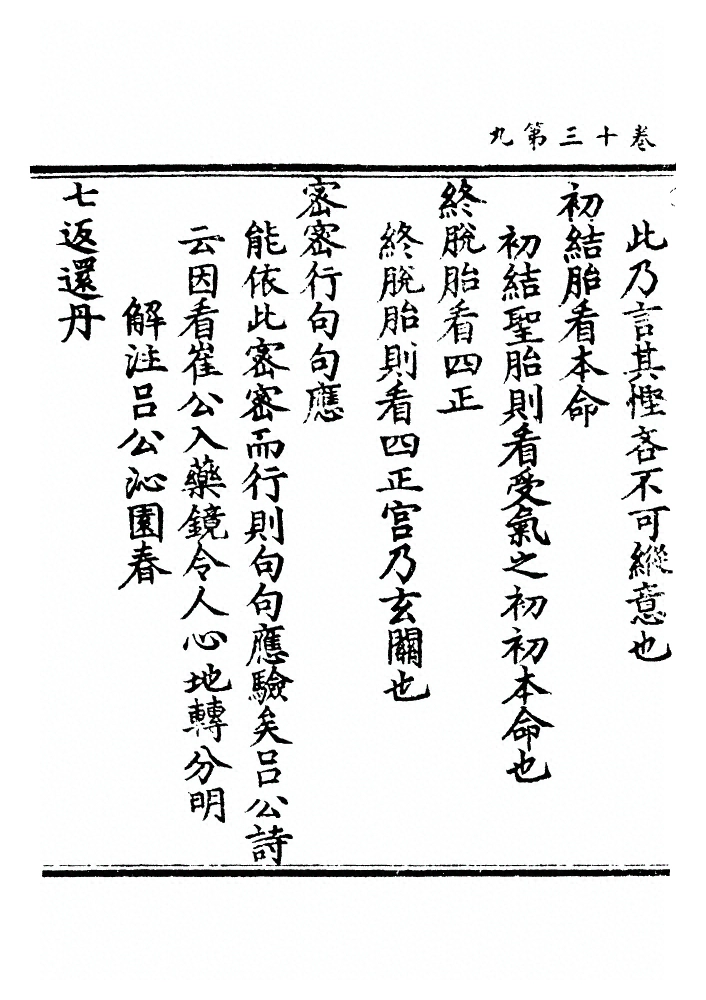 卷十三第九
此乃言其慳吝不可縱意也
初結胎看本命
初結聖胎則看受氣之初初本命也
終脫胎看四正
終脫胎則看四正宮乃玄關也
密密行句句應
能依此密密而行則句句應驗矣呂公詩
云因看崔公入藥鏡令人心地轉分明
解注呂公沁園春
七返還丹